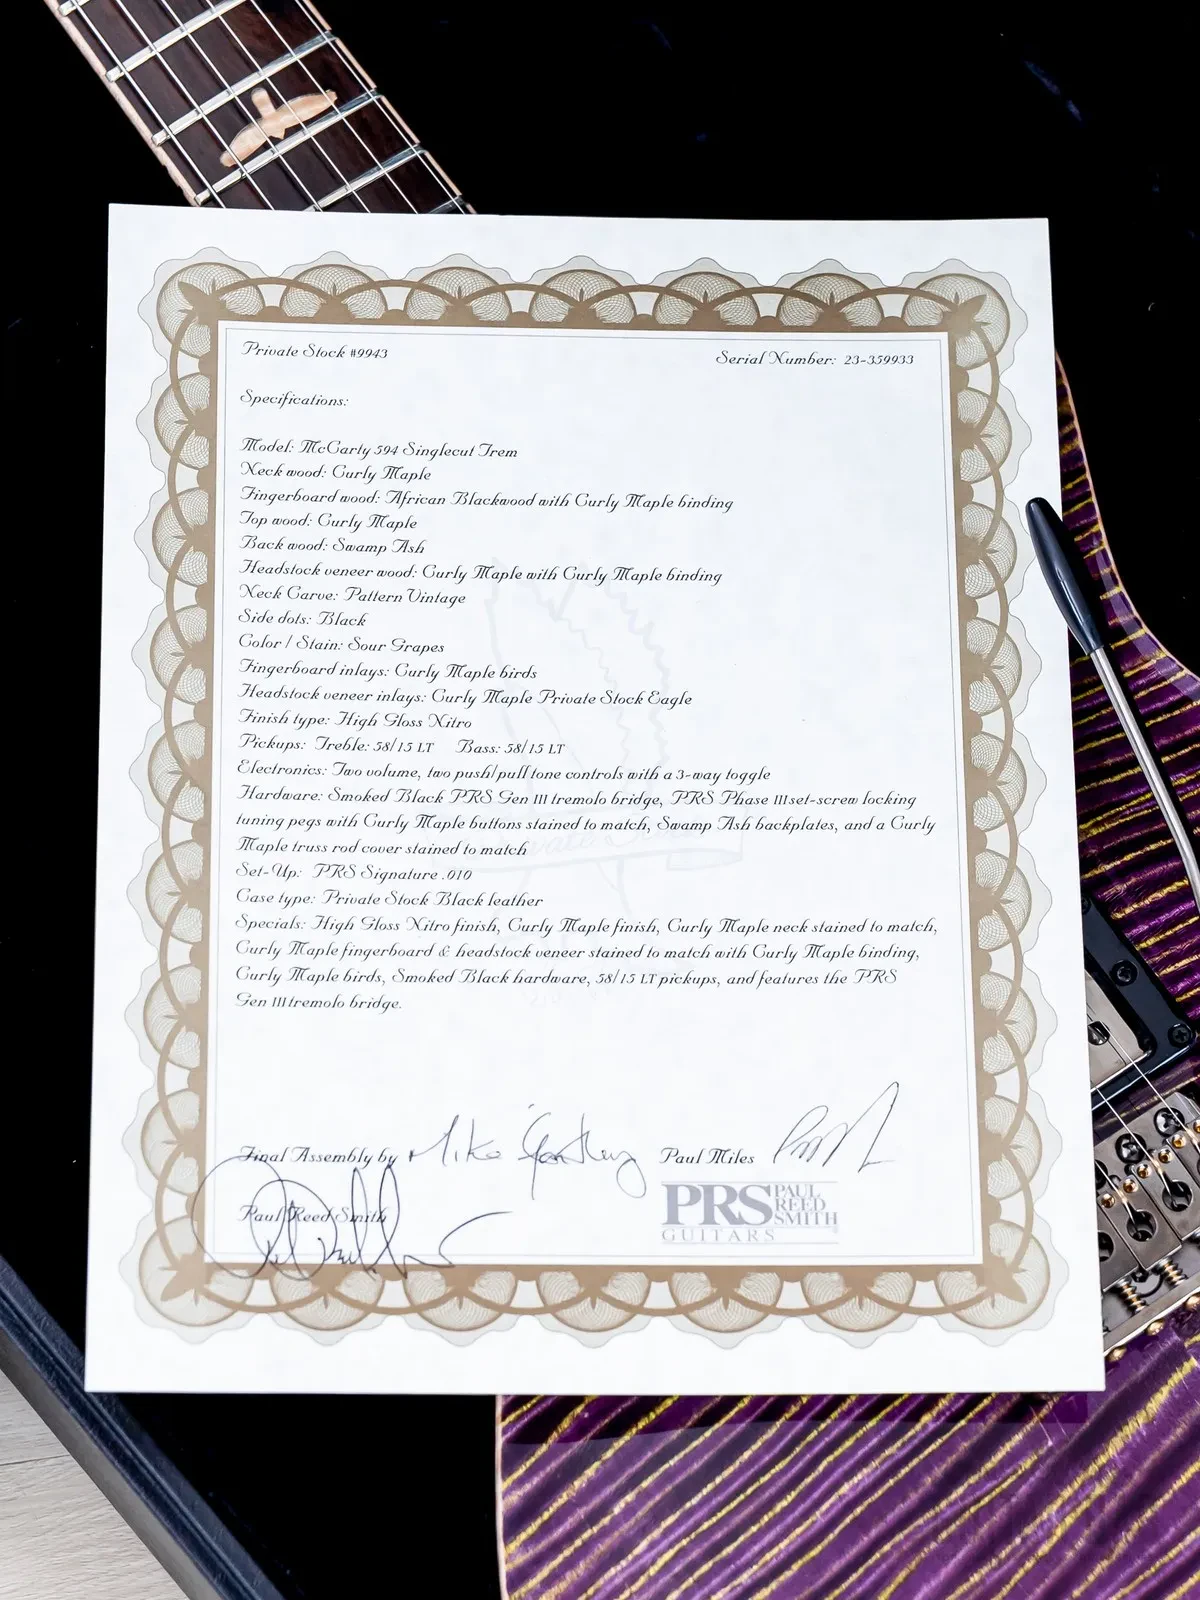 Private Stock #9943
Serial Number: 23-359933
Specifications:
Model: McCarty 594 Singlecut Trem
Neck wood: Curly Maple
Fingerboard wood: African Blackwood with Curly Maple binding
Top wood: Curly Maple
Back wood: Swamp Ash
Headstock veneer wood: Curly Maple with Curly Maple binding
Neck Carve: Pattern Vintage
Side dots: Black
Color / Stain: Sour Grapes
Fingerboard inlays: Curly Maple birds
Headstock veneer inlays: Curly Maple Private Stock Eagle
Finish type: High Gloss Nitro
Pickups: Treble: 58/15 LT Bass: 58/15 LT
Electronics: Two volume, two push/pull tone controls with a 3-way toggle
Hardware: Smoked Black PRS Gen III tremolo bridge, PRS Phase III set-screw locking
tuning pegs with Curly Maple buttons stained to match, Swamp Ash backplates, and a Curly
Maple truss rod cover stained to match
Set-Up: PRS Signature .010
Case type: Private Stock Black leather
Specials: High Gloss Nitro finish, Curly Maple finish, Curly Maple neck stained to match,
Curly Maple fingerboard & headstock veneer stained to match with Curly Maple binding,
Curly Maple birds, Smoked Black hardware, 58/15 LT pickups, and features the PRS
Gen III tremolo bridge.
Final Assembly by Mike
Paul Miles
Paul Reed Smith
PRS PAUL REED SMITH
GUITARS